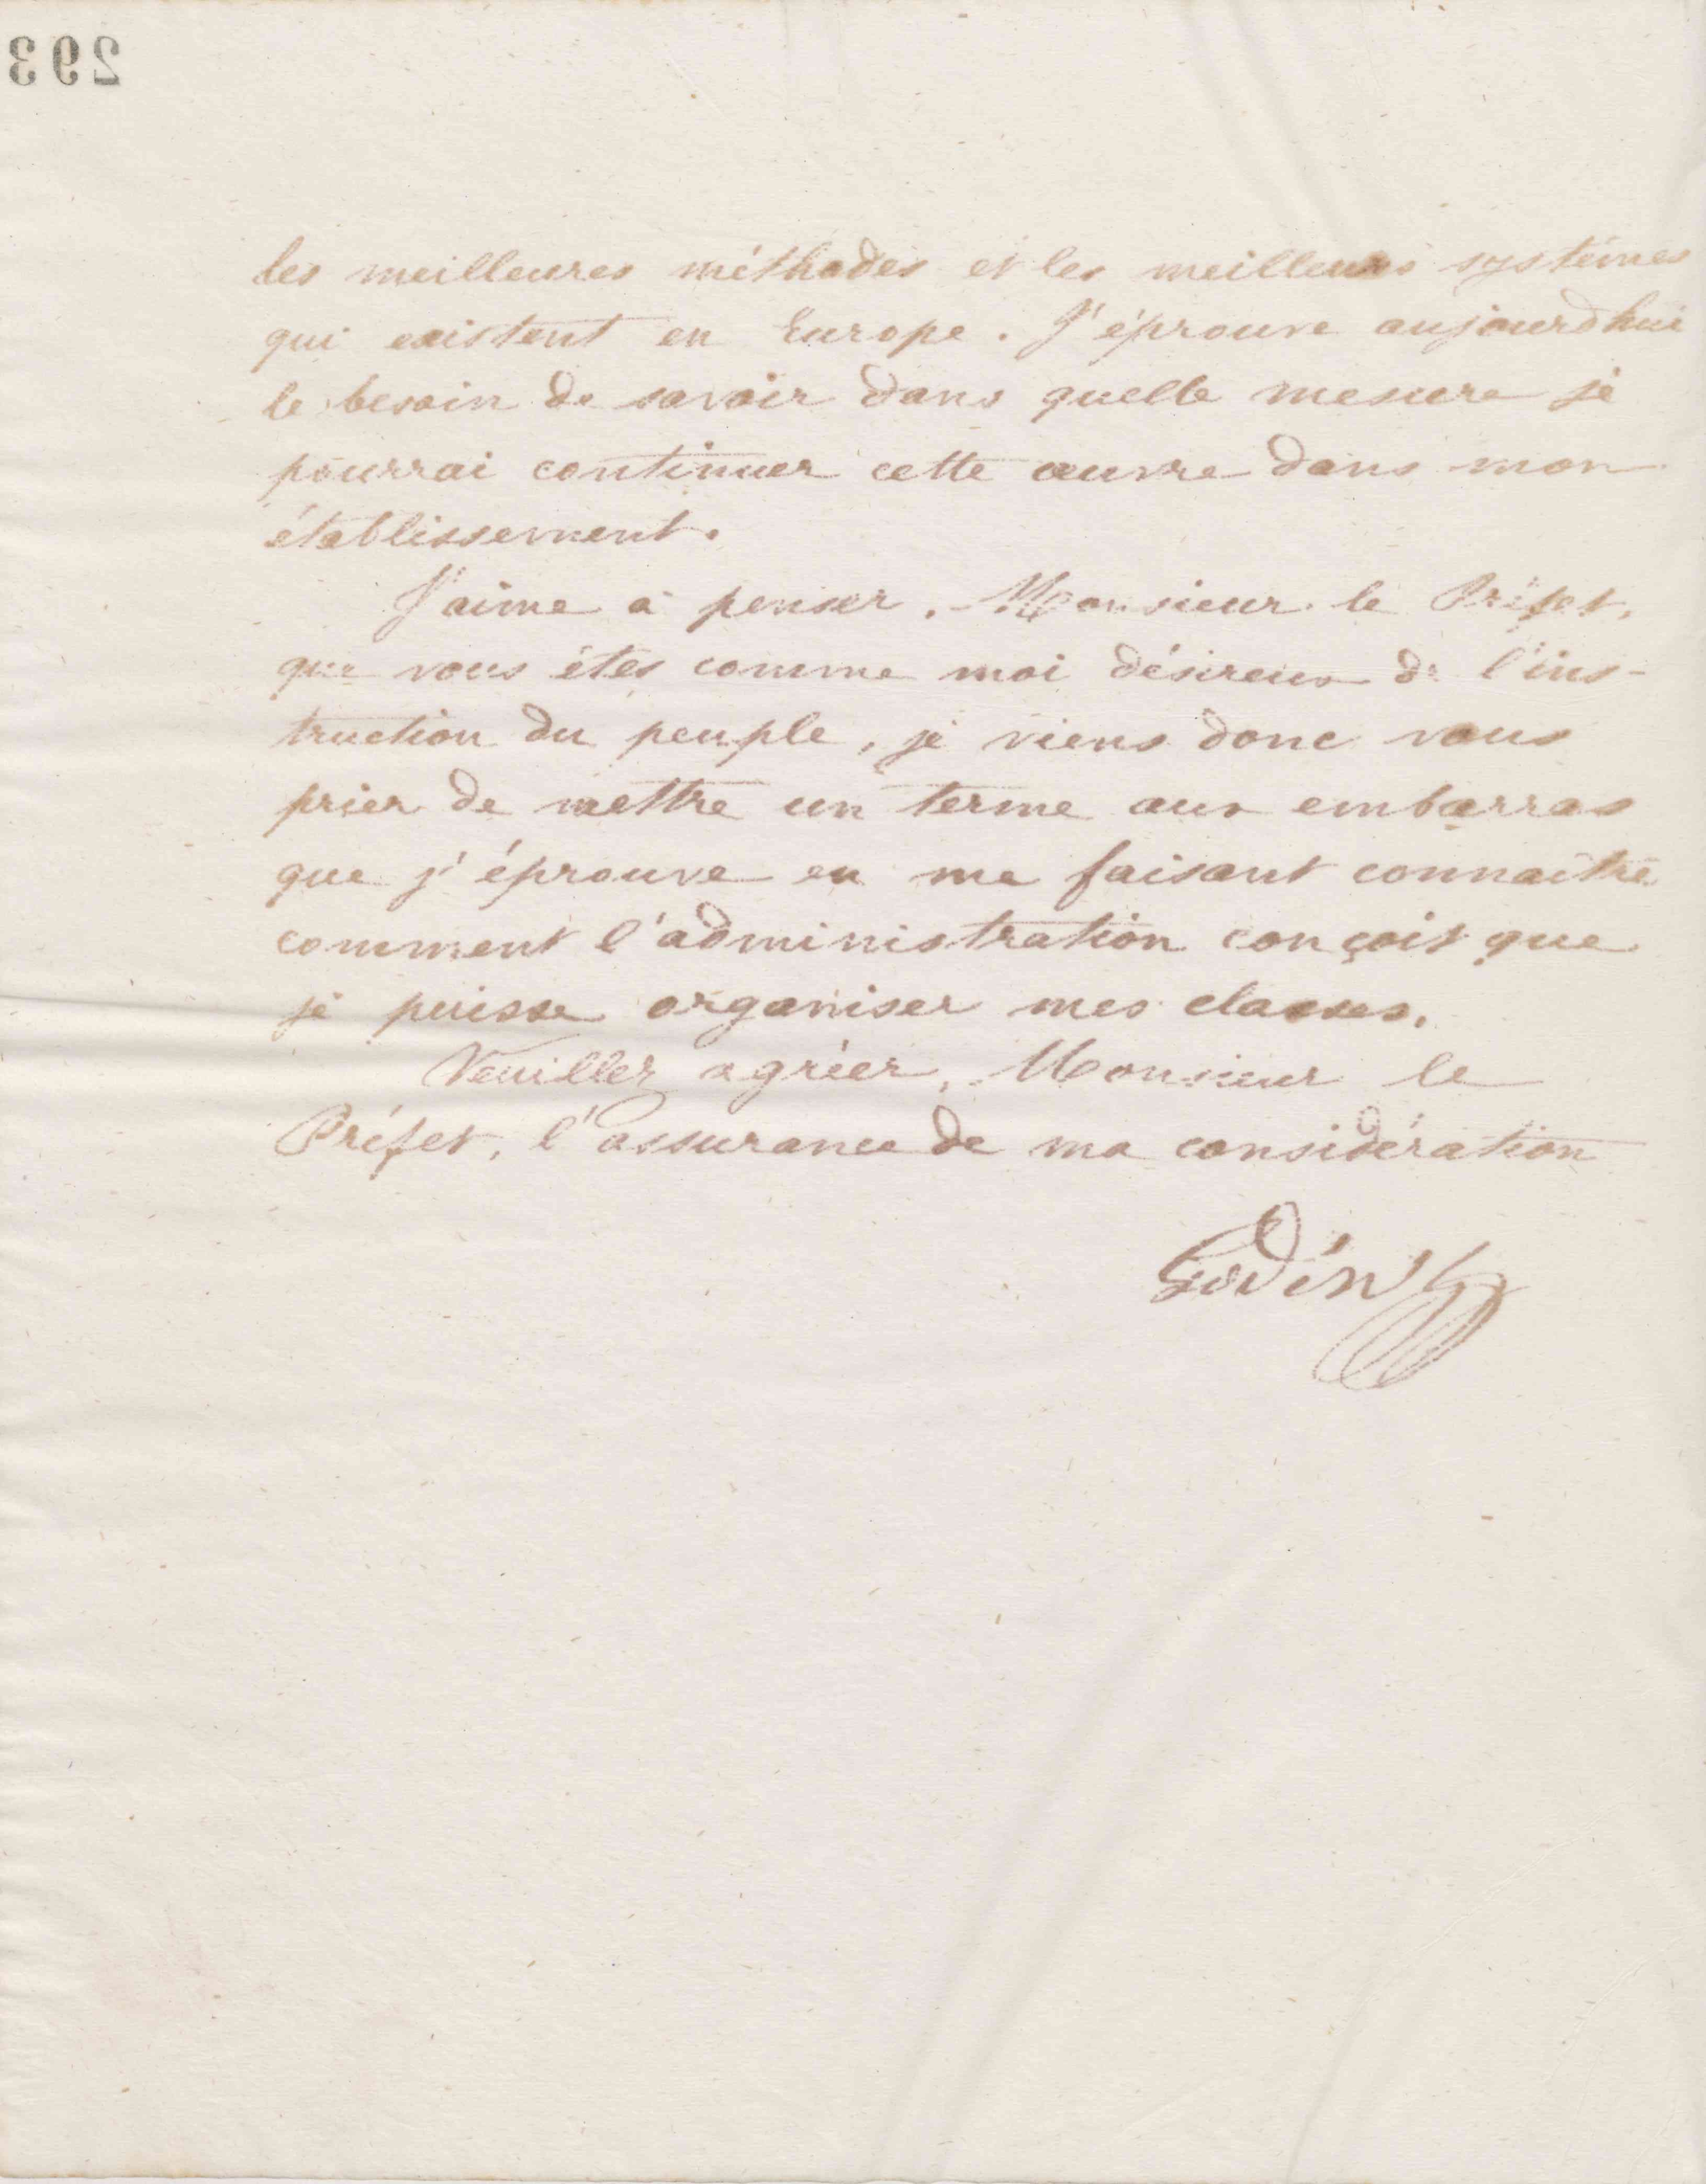 293
les meilleures méthodes et les meilleurs systèmes
qui existent en Europe. J'éprouve aujourd'hui
le besoin de savoir dans quelle mesure je
pourrai continuer cette œuvre dans mon
établissement.
J'aime à penser, Monsieur le Préfet,
que vous êtes comme moi désireux de l'ins-
truction du peuple, je viens donc vous
prier de mettre un terme aux embarras
que j'éprouve en me faisant connaître
comment l'administration conçoit que
je puisse organiser mes classes.
Veuillez agréer, Monsieur le
Préfet, l'assurance de ma considération
Godin